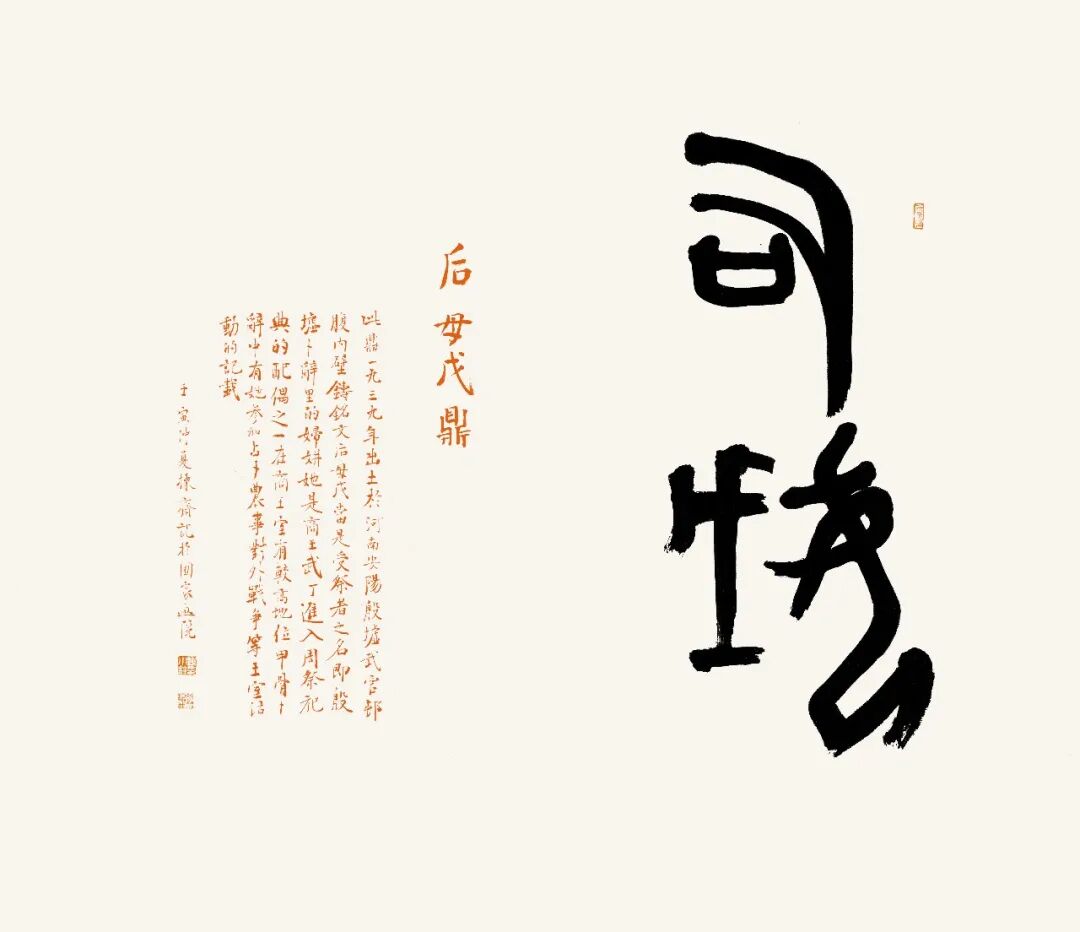 司母戊
后母戊鼎
此鼎一九三九年出土於河南安陽殷墟武官邨
腹内壁鑄銘文后母戊當是受祭者之名即殷
墟卜辭里的婦妌她是商王武丁進入周祭祀
典的配偶之一在商王室有較高地位甲骨卜
辭中有她參和占卜農事對外戰争等王室活
動的記載
壬寅夏齋記於國家畫院